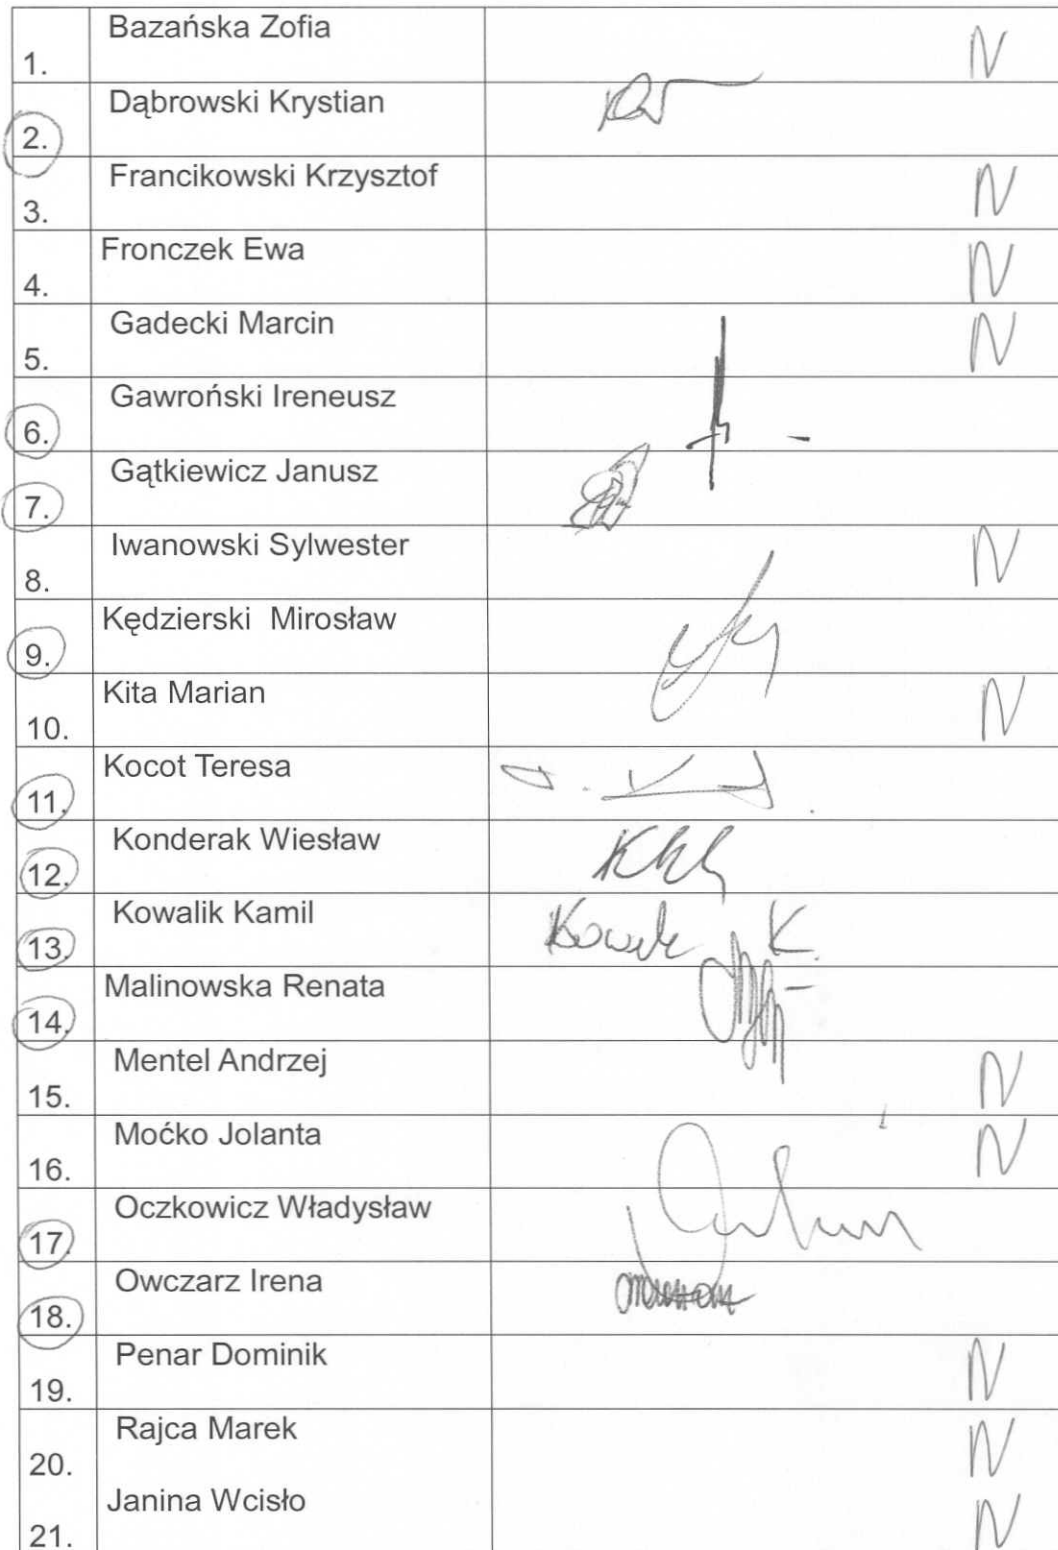 1. Bazańska Zofia N
2. Dąbrowski Krystian
3. Francikowski Krzysztof N
4. Fronczek Ewa N
5. Gadecki Marcin N
6. Gawroński Ireneusz
7. Gątkiewicz Janusz
8. Iwanowski Sylwester N
9. Kędzierski Mirosław
10. Kita Marian N
11. Kocot Teresa
12. Konderak Wiesław
13. Kowalik Kamil
14. Malinowska Renata
15. Mentel Andrzej N
16. Moćko Jolanta N
17. Oczkowicz Władysław
18. Owczarz Irena
19. Penar Dominik N
20. Rajca Marek N
21. Janina Wcisło N